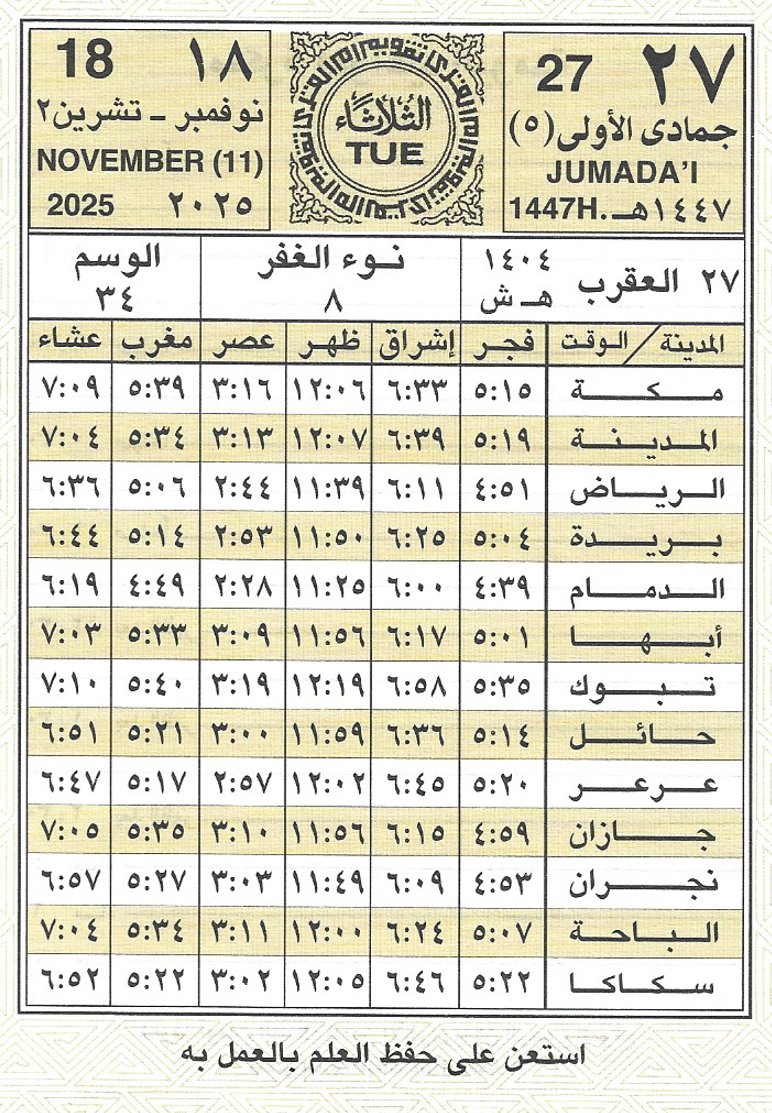 27 ٢٧
جمادى الأولى (٥)
JUMADA'I
1447H. ١٤٤٧هـ
تقويم أم القرى
الثلاثاء
TUE
18 ١٨
نوفمبر - تشرين٢
NOVEMBER (11)
2025 ٢٠٢٥
٢٧ العقرب ١٤٠٤ هـ ش
نوء الغفر ٨
الوسم ٣٤
المدينة / الوقت فجر إشراق ظهر عصر مغرب عشاء
مكة ٥:١٥ ٦:٣٣ ١٢:٠٦ ٣:١٦ ٥:٣٩ ٧:٠٩
المدينة ٥:١٩ ٦:٣٩ ١٢:٠٧ ٣:١٣ ٥:٣٤ ٧:٠٤
الرياض ٤:٥١ ٦:١١ ١١:٣٩ ٢:٤٤ ٥:٠٦ ٦:٣٦
بريدة ٥:٠٤ ٦:٢٥ ١١:٥٠ ٢:٥٣ ٥:١٤ ٦:٤٤
الدمام ٤:٣٩ ٦:٠٠ ١١:٢٥ ٢:٢٨ ٤:٤٩ ٦:١٩
أبها ٥:٠١ ٦:١٧ ١١:٥٦ ٣:٠٩ ٥:٣٣ ٧:٠٣
تبوك ٥:٣٥ ٦:٥٨ ١٢:١٩ ٣:١٩ ٥:٤٠ ٧:١٠
حائل ٥:١٤ ٦:٣٦ ١١:٥٩ ٣:٠٠ ٥:٢١ ٦:٥١
عرعر ٥:٢٠ ٦:٤٥ ١٢:٠٢ ٢:٥٧ ٥:١٧ ٦:٤٧
جازان ٤:٥٩ ٦:١٥ ١١:٥٦ ٣:١٠ ٥:٣٥ ٧:٠٥
نجران ٤:٥٣ ٦:٠٩ ١١:٤٩ ٣:٠٣ ٥:٢٧ ٦:٥٧
الباحة ٥:٠٧ ٦:٢٤ ١٢:٠٠ ٣:١١ ٥:٣٤ ٧:٠٤
سكاكا ٥:٢٢ ٦:٤٦ ١٢:٠٥ ٣:٠٢ ٥:٢٢ ٦:٥٢
استعن على حفظ العلم بالعمل به